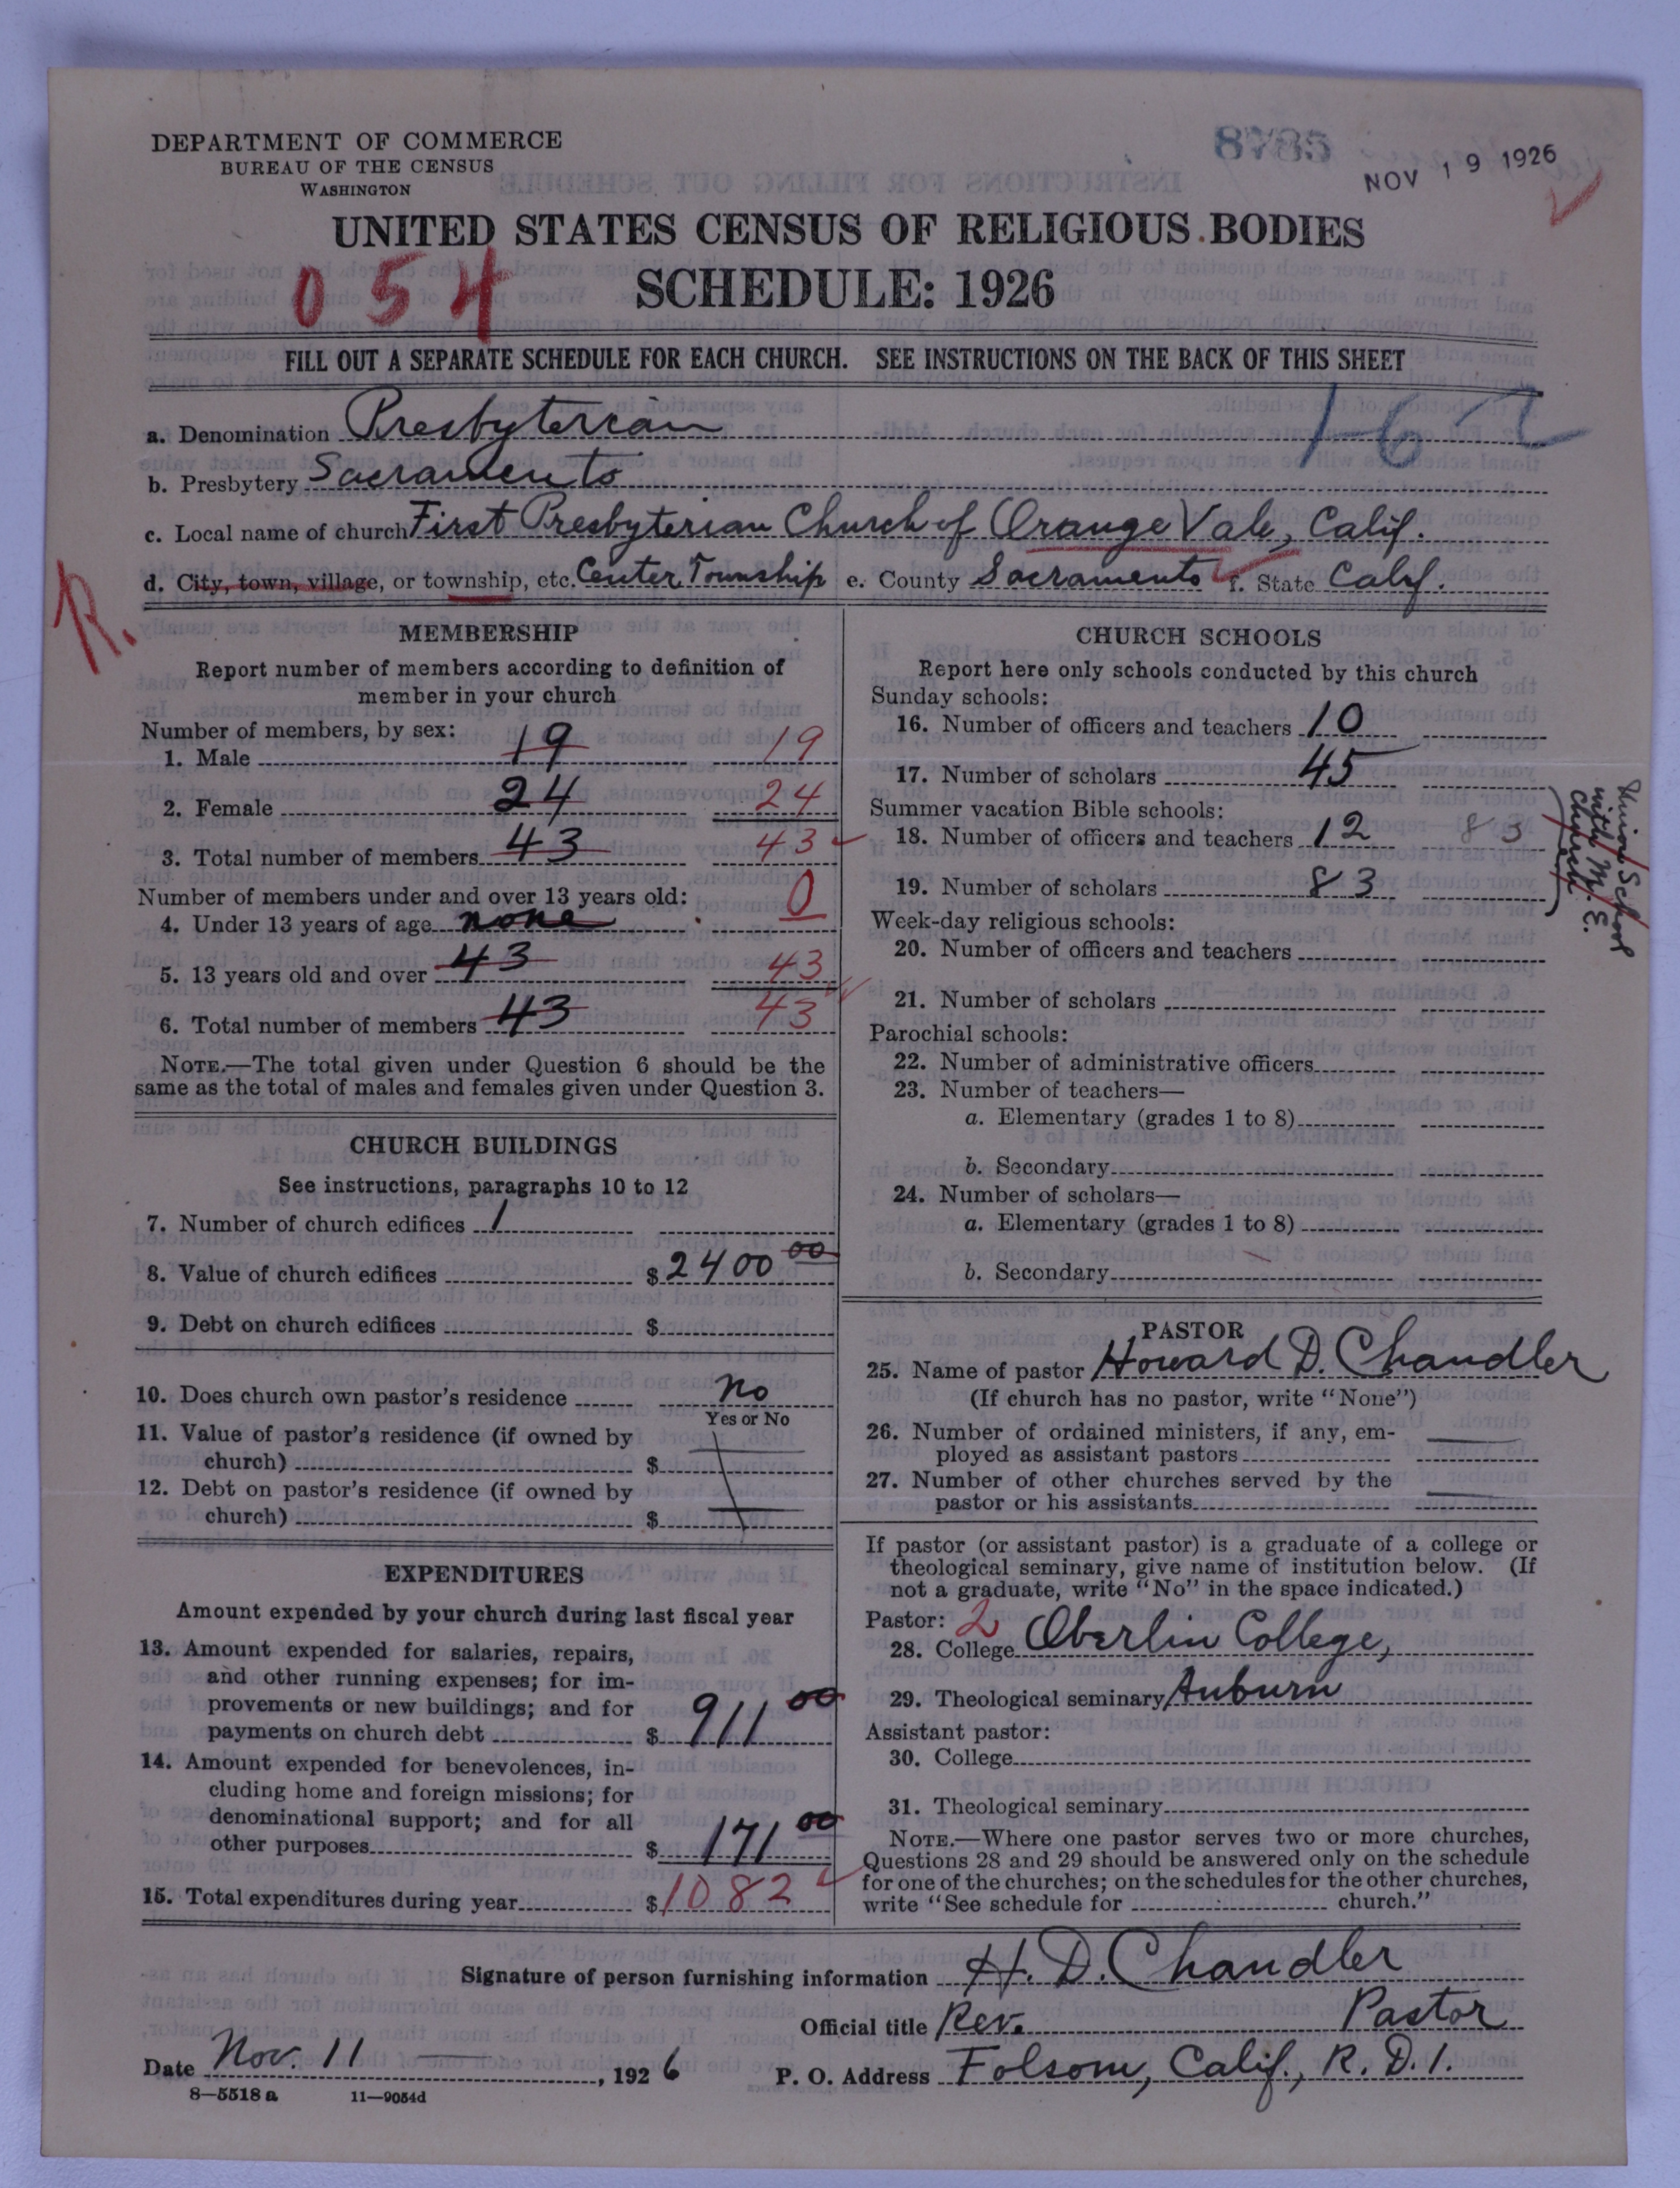 DEPARTMENT OF COMMERCE
BUREAU OF THE CENSUS
WASHINGTON
8785
NOV 19 1926
UNITED STATES CENSUS OF RELIGIOUS BODIES
SCHEDULE: 1926
054
FILL OUT A SEPARATE SCHEDULE FOR EACH CHURCH. SEE INSTRUCTIONS ON THE BACK OF THIS SHEET
a. Denomination Presbyterian
b. Presbytery Sacramento
c. Local name of church First Presbyterian Church of Orange Vale, Calif.
d. City, town, village, or township, etc. Center Township e. County Sacramento f. State Calif.
R.
MEMBERSHIP
Report number of members according to definition of
member in your church
Number of members, by sex:
1. Male 19 19
2. Female 24 24
3. Total number of members 43 43
Number of members under and over 13 years old:
4. Under 13 years of age none 0
5. 13 years old and over 43 43
6. Total number of members 43 43
NOTE.—The total given under Question 6 should be the
same as the total of males and females given under Question 3.
CHURCH BUILDINGS
See instructions, paragraphs 10 to 12
7. Number of church edifices 1
8. Value of church edifices $2400 00
9. Debt on church edifices $
10. Does church own pastor's residence no
Yes or No
11. Value of pastor's residence (if owned by
church) $
12. Debt on pastor's residence (if owned by
church) $
EXPENDITURES
Amount expended by your church during last fiscal year
13. Amount expended for salaries, repairs,
and other running expenses; for im-
provements or new buildings; and for
payments on church debt $ 911 00
14. Amount expended for benevolences, in-
cluding home and foreign missions; for
denominational support; and for all
other purposes $ 171 00
15. Total expenditures during year $1082
CHURCH SCHOOLS
Report here only schools conducted by this church
Sunday schools:
16. Number of officers and teachers 10
17. Number of scholars 45
Summer vacation Bible schools:
18. Number of officers and teachers 12 83
19. Number of scholars 83
Union School
with M. E.
Church
Week-day religious schools:
20. Number of officers and teachers
21. Number of scholars
Parochial schools:
22. Number of administrative officers
23. Number of teachers—
a. Elementary (grades 1 to 8)
b. Secondary
24. Number of scholars—
a. Elementary (grades 1 to 8)
b. Secondary
PASTOR
25. Name of pastor Howard D. Chandler
(If church has no pastor, write "None")
26. Number of ordained ministers, if any, em-
ployed as assistant pastors
27. Number of other churches served by the
pastor or his assistants
If pastor (or assistant pastor) is a graduate of a college or
theological seminary, give name of institution below. (If
not a graduate, write "No" in the space indicated.)
Pastor: 2
28. College Oberlin College,
29. Theological seminary Auburn
Assistant pastor:
30. College
31. Theological seminary
NOTE.—Where one pastor serves two or more churches,
Questions 28 and 29 should be answered only on the schedule
for one of the churches; on the schedules for the other churches,
write "See schedule for church."
Signature of person furnishing information H. D. Chandler
Official title Rev. Pastor
Date Nov. 11, 1926 P. O. Address Folsom, Calif., R. D. 1.
8—5518a 11—9054d